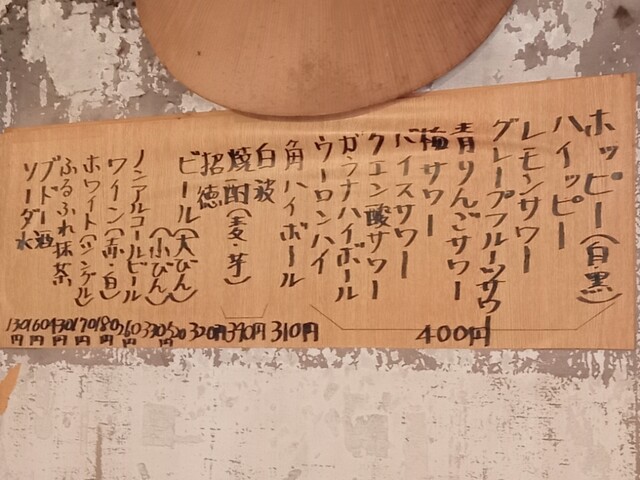 ホッピー(白・黒)
ハイッピー
レモンサワー
グレープフルーツサワー
青りんごサワー
梅サワー
バイスサワー
クエン酸サワー
ガラナハイボール
ウーロンハイ
400円
角ハイボール
310円
白波
焼酎(麦・芋)
390円
招徳
320円
ビール(大びん)
520円
(小びん)
330円
ノンアルコールビール
260円
ワイン(赤・白)
180円
ホワイト(シングル)
170円
ふるふれ抹茶
430円
ブドー酒
160円
ソーダ水
130円